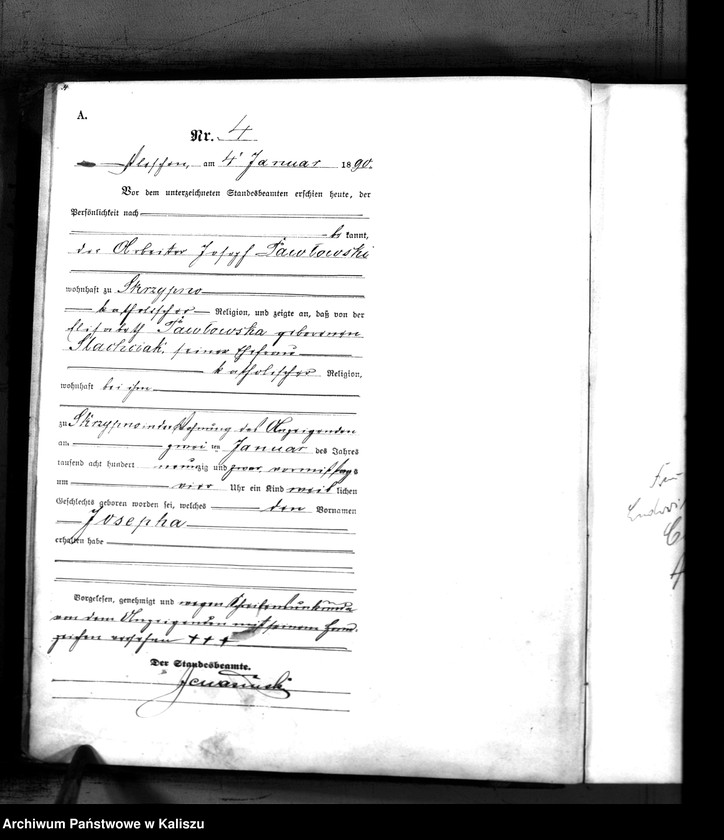 A.
Nr. 4
Pleschen, am 4. Januar 1890.
Vor dem unterzeichneten Standesbeamten erschien heute, der
Persönlichkeit nach
be kannt,
der Arbeiter Josef Pawłowski
wohnhaft zu Skrzypno
katholischer Religion, und zeigte an, daß von der
Elisabeth Pawłowska geborenen
Stachciak, seiner Ehefrau
katholischer Religion,
wohnhaft bei ihm
zu Skrzypno in der Wohnung des Anzeigenden
am zwei ten Januar des Jahres
tausend acht hundert neunzig und zwar vormittags
um vier Uhr ein Kind weib lichen
Geschlechts geboren worden sei, welches den Vornamen
Josepha
erhalten habe
Vorgelesen, genehmigt und wegen Schreibensunkunde
von dem Anzeigenden mit seinem Hand-
zeichen versehen + + +
Der Standesbeamte.
Archiwum Państwowe w Kaliszu